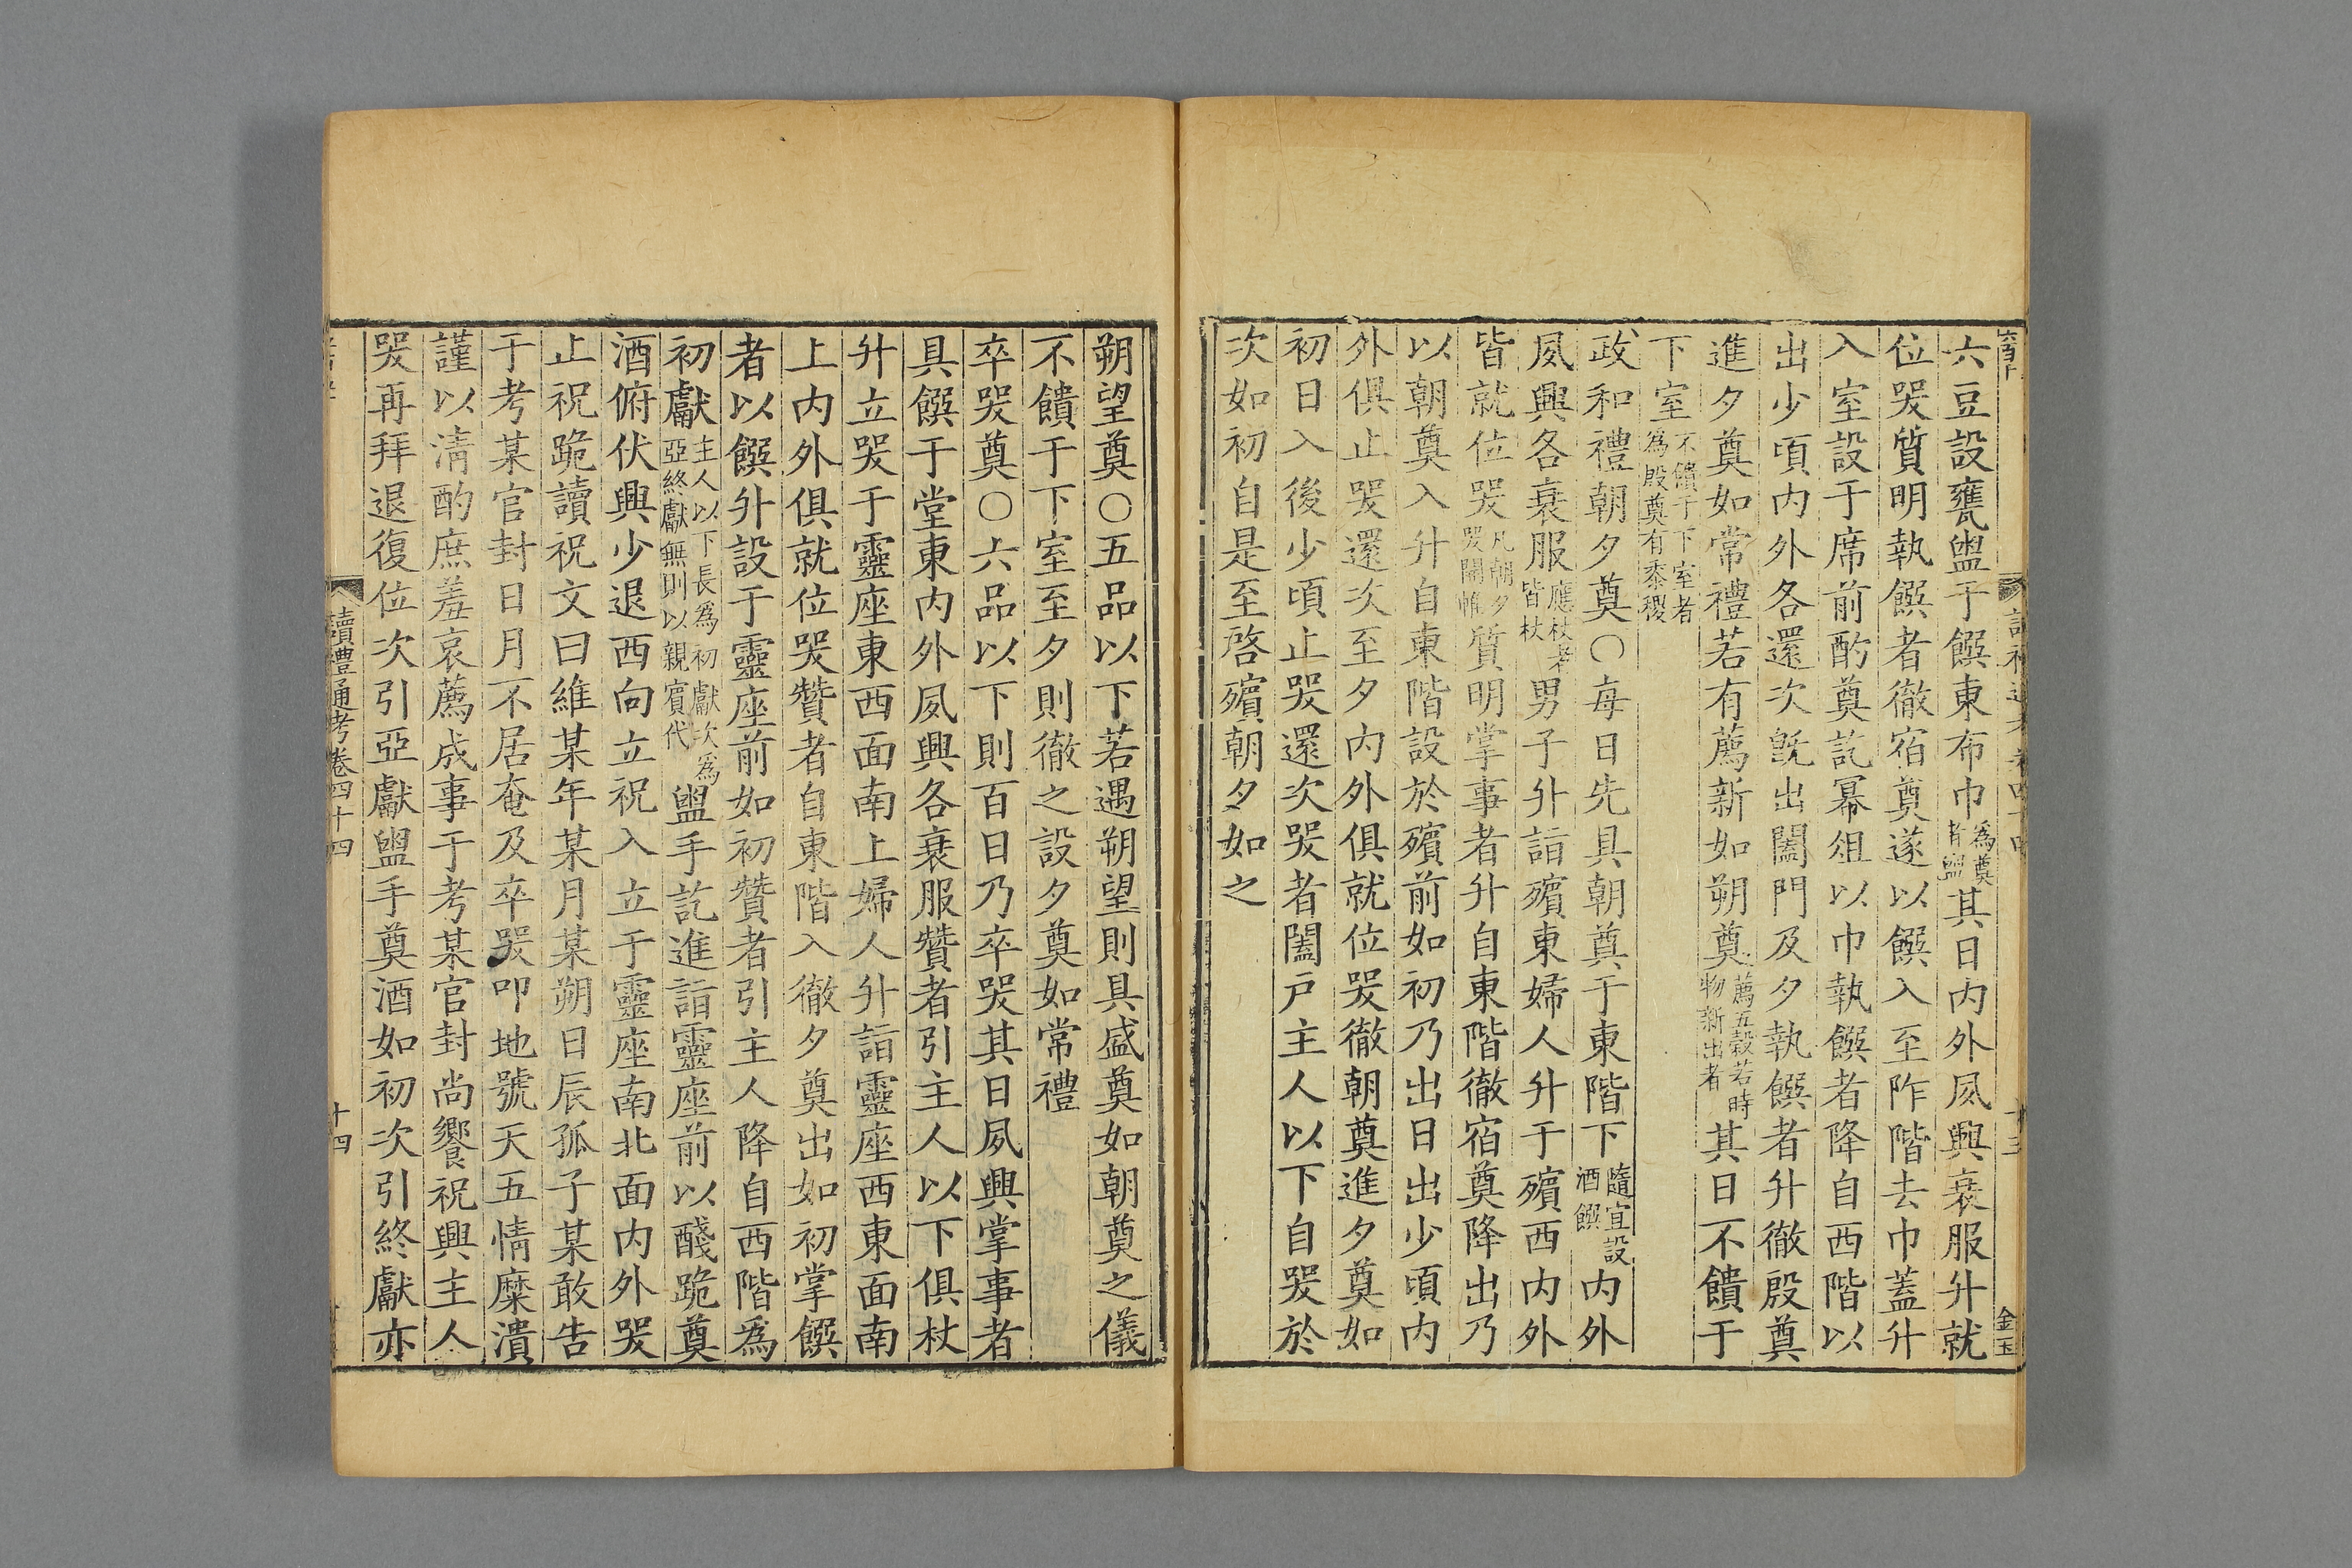 六豆設甕盥于饌東布巾為奠者盥其日内外夙興衰服升就
位哭質明執饌者徹宿奠遂以饌入至阼階去巾蓋升
入室設于席前酌奠訖冪俎以巾執饌者降自西階以
出少頃内外各還次既出闔門及夕執饌者升徹殷奠
進夕奠如常禮若有薦新如朔奠薦五穀若時物新出者其日不饋于
下室不饋于下室者為殷奠有黍稷
政和禮朝夕奠○每日先具朝奠于東階下隨宜設酒饌内外
夙興各衰服應杖者皆杖男子升詣殯東婦人升于殯西内外
皆就位哭凡朝夕哭開帷質明掌事者升自東階徹宿奠降出乃
以朝奠入升自東階設於殯前如初乃出日出少頃内
外俱止哭還次至夕内外俱就位哭徹朝奠進夕奠如
初日入後少頃止哭還次哭者闔戸主人以下自哭於
次如初自是至啓殯朝夕如之
金玉
朔望奠○五品以下若遇朔望則具盛奠如朝奠之儀
不饋于下室至夕則徹之設夕奠如常禮
卒哭奠○六品以下則百日乃卒哭其日夙興掌事者
具饌于堂東内外夙興各衰服贊者引主人以下俱杖
升立哭于靈座東西面南上婦人升詣靈座西東面南
上内外俱就位哭贊者自東階入徹夕奠出如初掌饌
者以饌升設于靈座前如初贊者引主人降自西階為
初獻主人以下長為初獻次為亞終獻無則以親賓代盥手訖進詣靈座前以醆跪奠
酒俯伏興少退西向立祝入立于靈座南北面内外哭
止祝跪讀祝文曰維某年某月某朔日辰孤子某敢告
于考某官封日月不居奄及卒哭叩地號天五情糜潰
謹以清酌庶羞哀薦成事于考某官封尚饗祝興主人
哭再拜退復位次引亞獻盥手奠酒如初次引終獻亦
讀禮通考卷四十四
十四